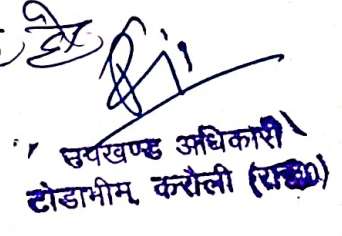 उपखण्ड अधिकारी
टोडाभीम, करौली (राज॰)